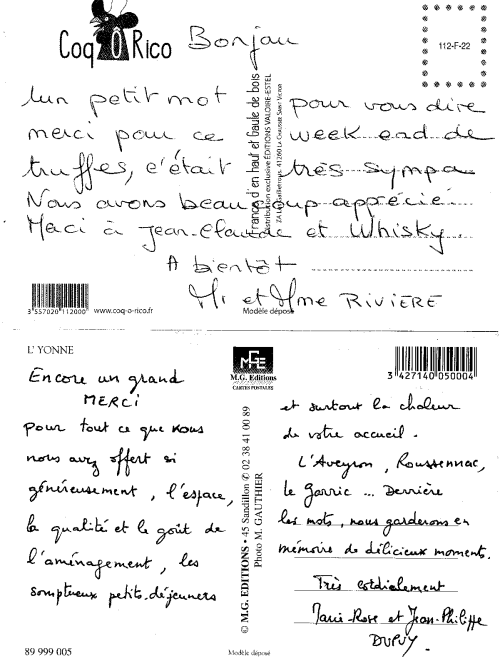 Coq Ô Rico
Bonjou
112-F-22
Un petit mot pour vous dire
merci pour ce week end de
truffes, c'était très sympa.
Nous avons beaucoup apprécié.
Merci à Jean-Claude et Whisky.
A bientôt
Mr et Mme RIVIÈRE
France d'en haut et Gaule de bois
Distribution exclusive ÉDITIONS VALOIRE-ESTEL
3 557020 112000
www.coq-o-rico.fr
Modèle déposé
L'YONNE
M.G. Editions
CARTES POSTALES
3 427140 050004
Encore un grand
MERCI
pour tout ce que vous
nous avez offert si
généreusement, l'espace,
la qualité et le goût de
l'aménagement, les
somptueux petits-déjeuners
© M.G. EDITIONS • 45 Sandillon ✆ 02 38 41 00 89
Photo M. GAUTHIER
et surtout la chaleur
de votre accueil.
L'Aveyron, Roussennac,
le Garric ... Derrière
les mots, nous garderons en
mémoire de délicieux moments.
Très cordialement
Marie-Rose et Jean-Philippe
DUPUY.
89 999 005
Modèle déposé